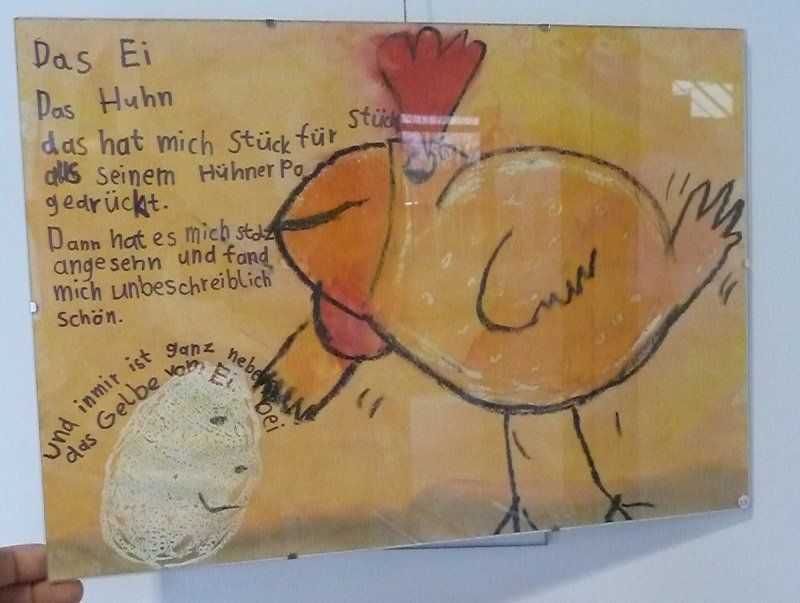 Das Ei
Das Huhn
das hat mich Stück für Stück
aus seinem HühnerPo
gedrückt.
Dann hat es mich stolz
angesehn und fand
mich unbeschreiblich
schön.
und inmir ist ganz nebenbei
das Gelbe vom Ei.